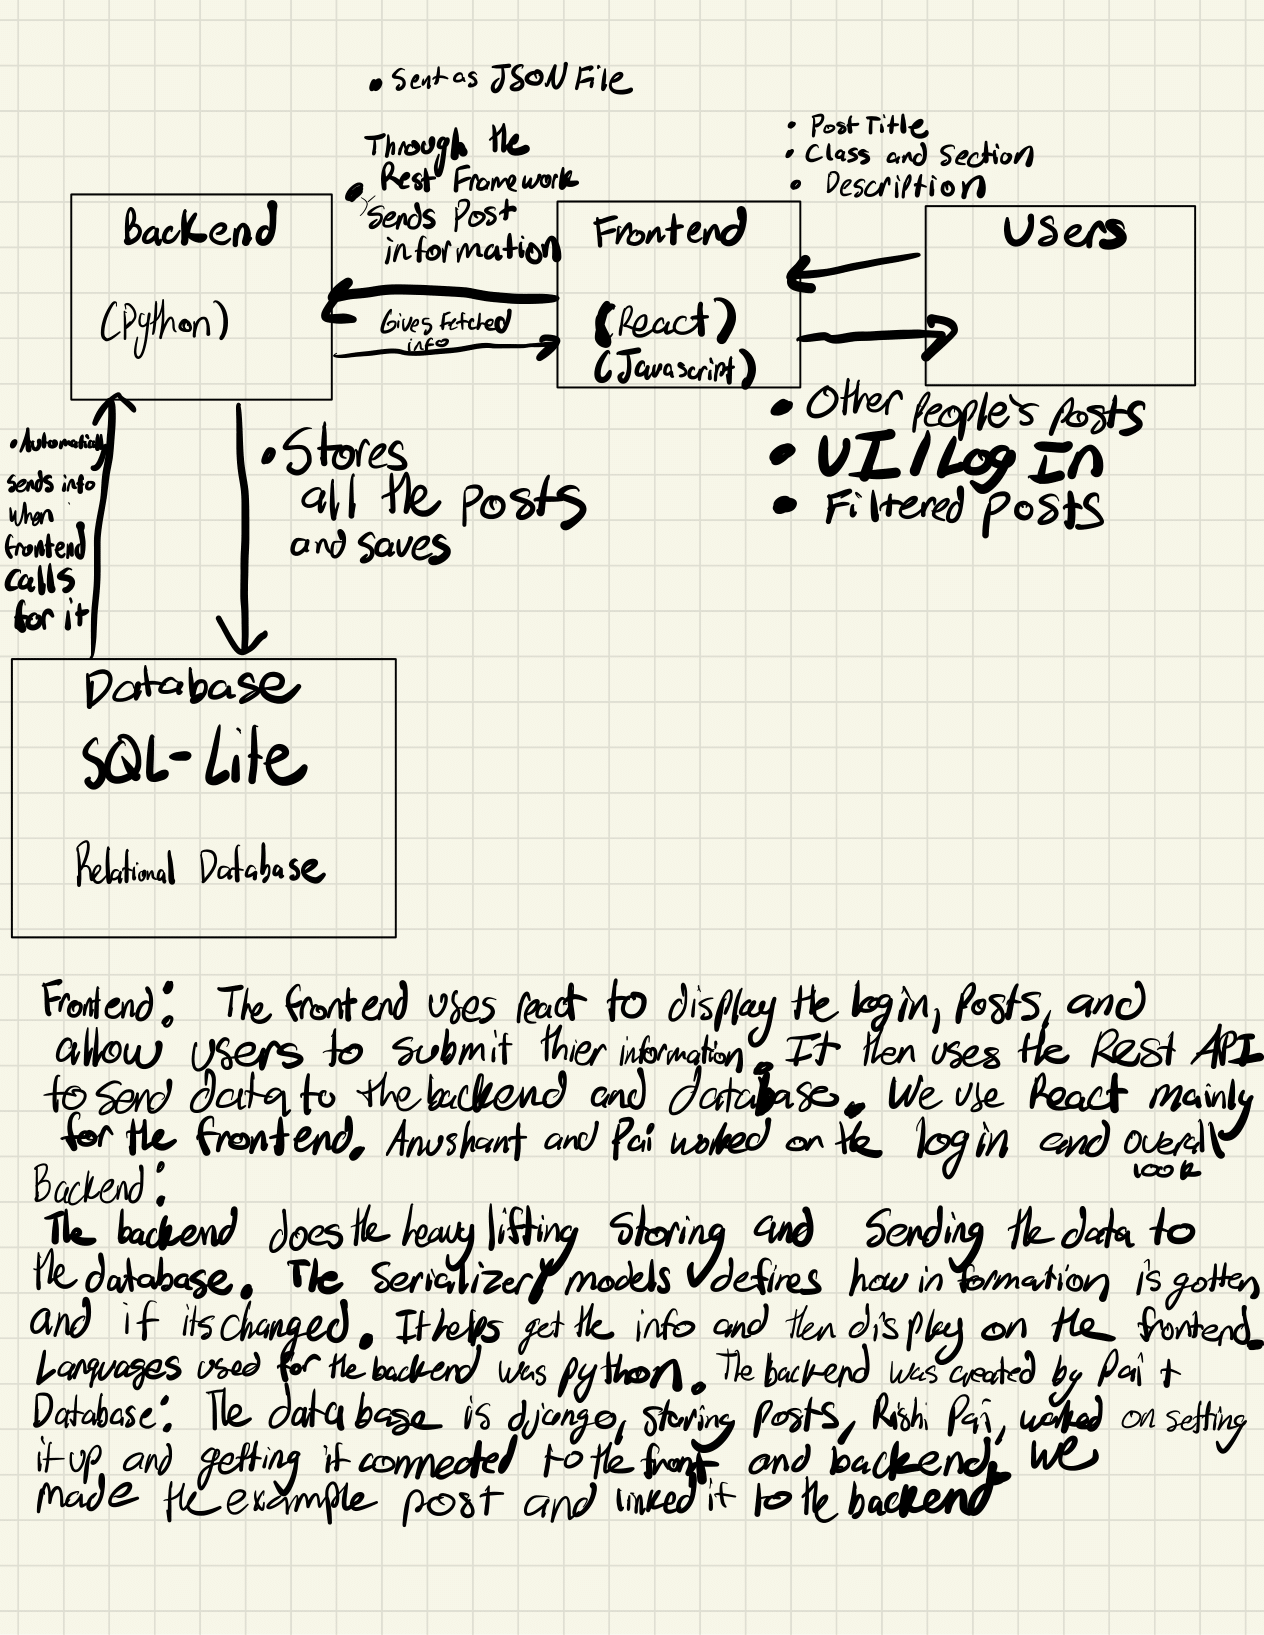 • Sent as JSON File
Through the
• Rest Framework
Sends Post
information
• Post Title
• Class and Section
• Description
Backend
(Python)
Gives Fetched
info
Frontend
(React)
(Javascript)
Users
• Other People's posts
• UI/Log In
• Filtered posts
• Automatically
sends info
when
frontend
calls
for it
• Stores
all the posts
and saves
Database
SQL-Lite
Relational Database
Frontend: The frontend uses react to display the login, posts, and
allow users to submit thier information. It then uses the Rest API
to send data to the backend and database. We use React mainly
for the frontend. Anushant and Pai worked on the login and overall
look
Backend:
The backend does the heavy lifting storing and sending the data to
the database. The Serializer/models defines how information is gotten
and if its changed. It helps get the info and then display on the frontend.
Languages used for the backend was python. The backend was created by Pai +
Database: The database is django, storing posts, Rishi Pai, worked on setting
it up and getting it connected to the front and backend, we
made the example post and linked it to the backend